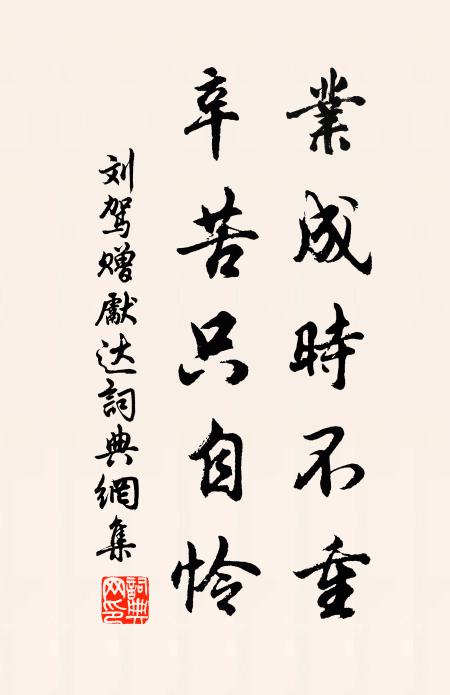 業成時不重
辛苦只自怜
刘駕赠獻达詞典網集
詞典网印